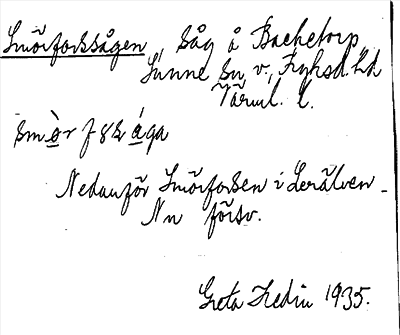 Smörforssågen, såg å Backetorp,
Sunne sn v., Fryksd. hd
Värml. l.
smòrfssága
Nedanför Smörforsen i Lerälven.
Nu försv.
Greta Hedin 1935.